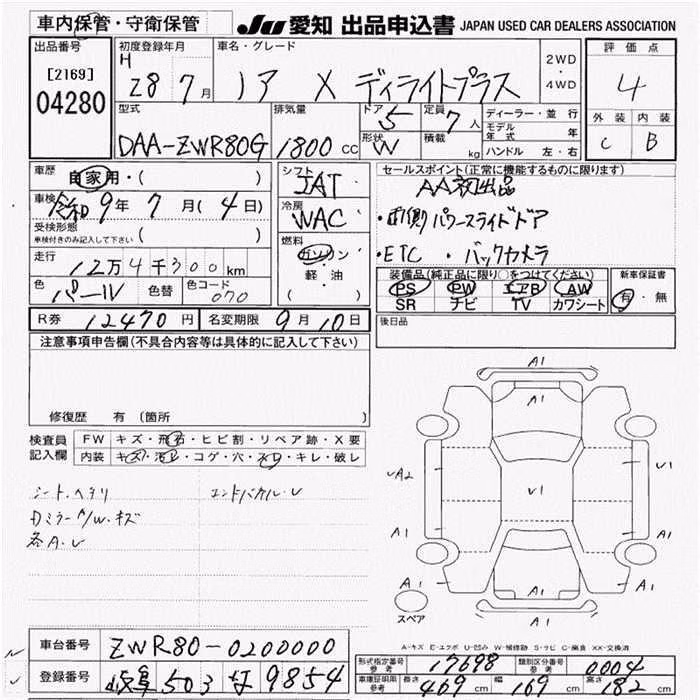 車内保管・守衛保管
JU 愛知 出品申込書 JAPAN USED CAR DEALERS ASSOCIATION
出品番号
[2169]
04280
初度登録年月
H
28 7月
車名・グレード
ノア X ディライトプラス
2WD
・
4WD
評価点
4
外装 内装
C B
型式
DAA-ZWR80G
排気量
1800 cc
ドア 5
定員 7人
形状 W
積載 kg
ディーラー・並行
モデル年式 年
ハンドル 左・右
車歴
自家用・( )
車検 令和 9年 7月(4日)
受検形態
車検付きのみ記入して下さい ( )
走行 12万4千300km
色 パール 色替 色コード 070
シフト
IAT
冷房
WAC
燃料
ガソリン・
軽・油
( )
セールスポイント(正常に機能するものに限ります)
AA初出品
・両側パワースライドドア
・ETC ・バックカメラ
装備品(純正品に限り○をつけてください)
PS PW エアB AW
SR ナビ TV カワシート
新車保証書
有・無
R券 12470円 名変期限 9月10日
後日品
注意事項申告欄(不具合内容等は具体的に記入して下さい)
修復歴 有(箇所
検査員
記入欄
FW キズ・飛石・ヒビ割・リペア跡・X要
内装 キズ・汚レ・コゲ・穴・ネジ・キレ・破レ
シート・ヘタリ エンドバカル・U
Dミラー A/W・キズ
各A・U
A1
A1
A2
V1
V1
A1
A1
A1
A1
A1
A1
スペア
A-キズ E-エクボ U-凹み W-補修跡 S-サビ C-腐食 XX-交換済
車台番号 ZWR80-0200000
登録番号 岐阜 503 せ 9854
形式指定番号
参考
17698
類別区分番号
参考
0004
車庫証明用
参考
長さ 469cm 幅 169cm 高さ 182cm